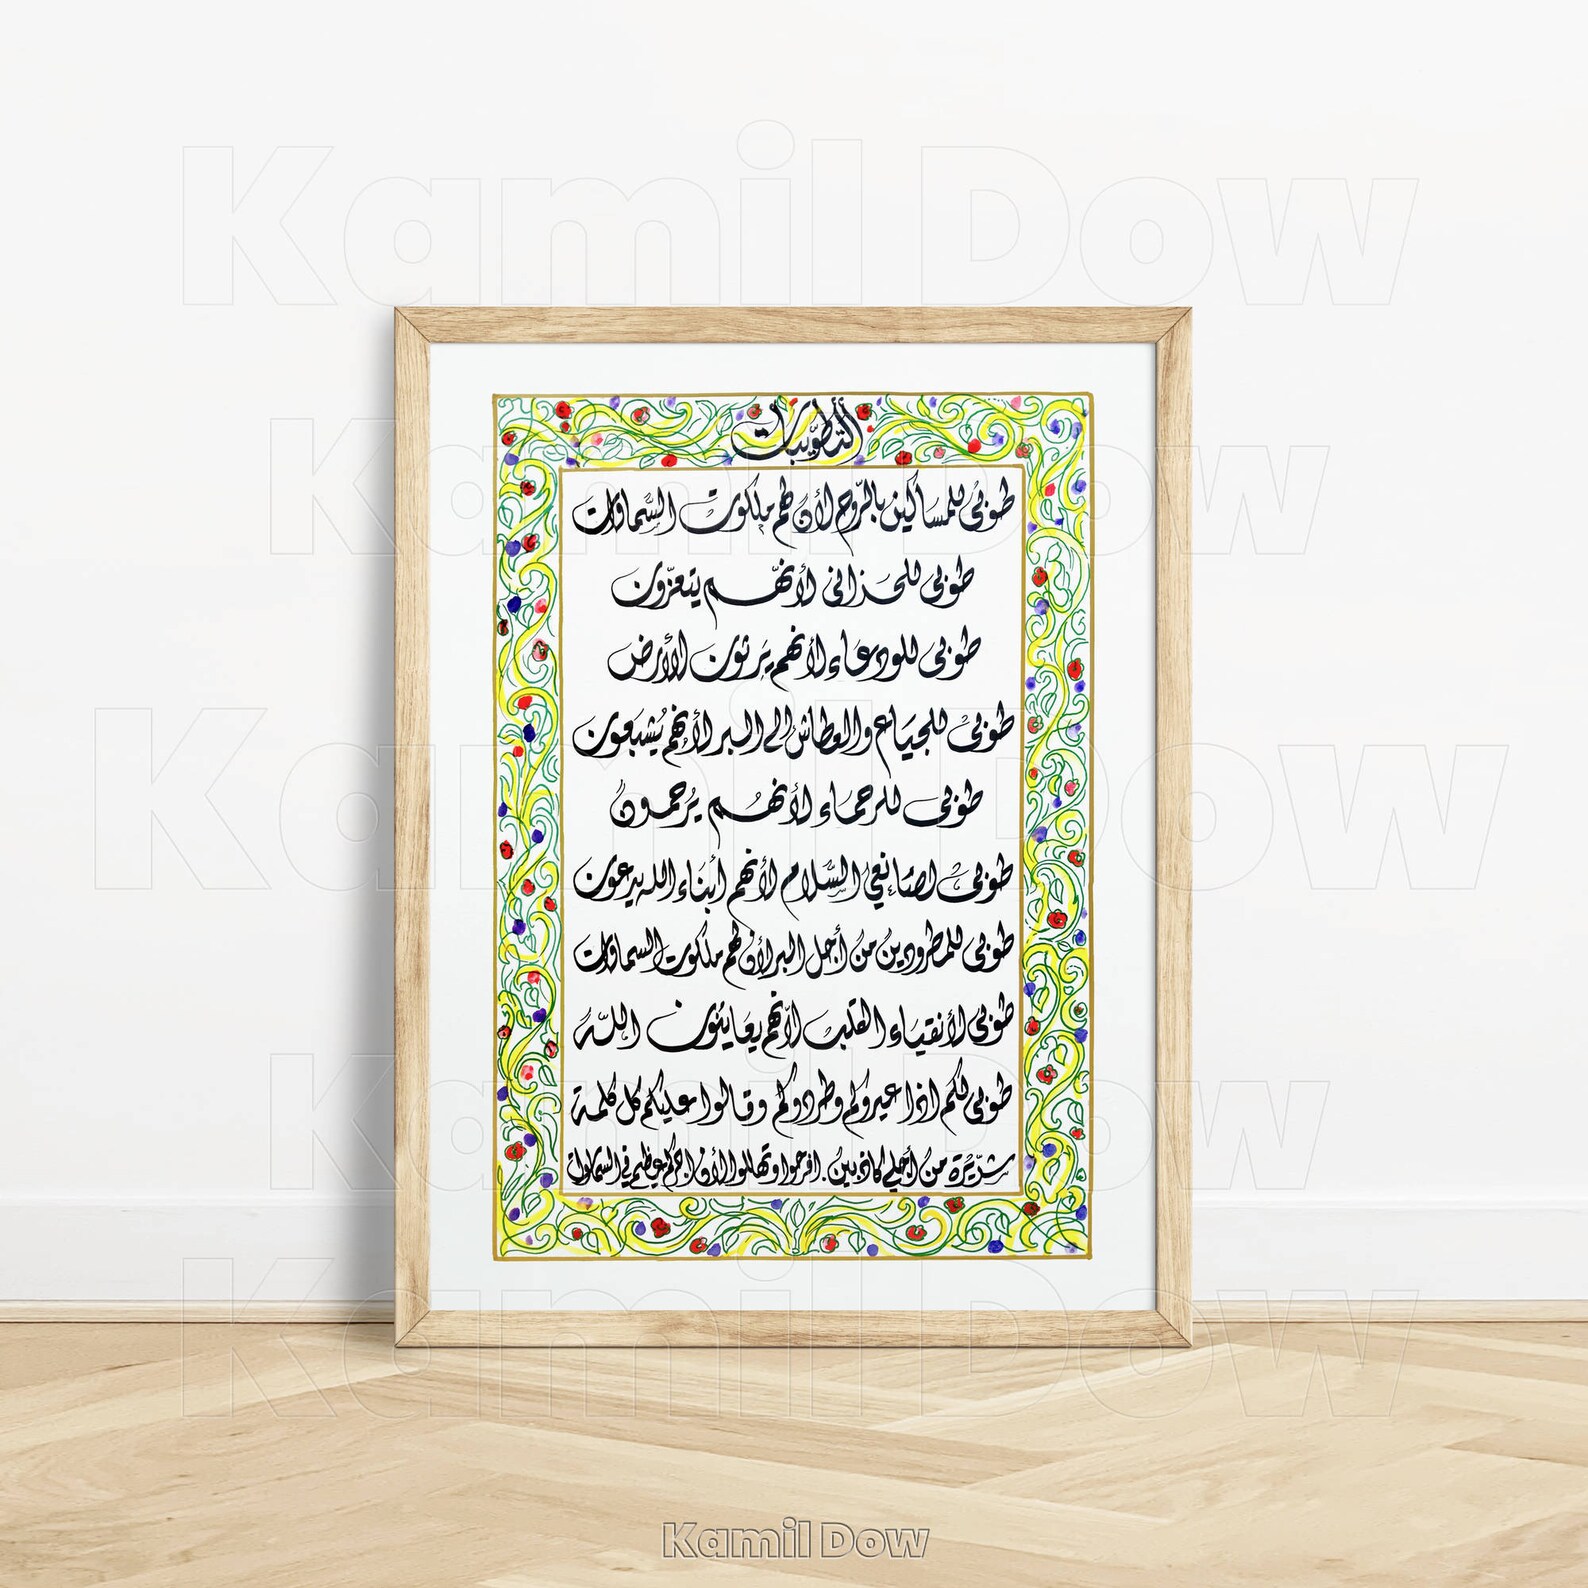 Kamil Dow
Kamil Dow
التطويبات
طوبى للمساكين بالرّوح لأن لهم ملكوت السّماوات
طوبى للحزانى لأنّهم يتعزّون
طوبى للودعاء لأنهم يَرثون الأرض
طوبى للجياع والعطاش إلى البر لأنهم يُشبعون
Kamil Dow
طوبى للرحماء لأنهُم يُرحمون
طوبى لصانعي السَّلام لأنهم أبناء الله يدعون
طوبى للمطرودين من أجل البر لأن لهم ملكوت السماوات
طوبى لأنقياء القلب لأنّهم يعاينون اللّه
طوبى لكم اذا عيروكم وطردوكم وقالوا عليكم كل كلمة
Kamil Dow
شرّيرة من أجلي كاذبين. افرحوا وتهللوا لأن اجركم عظيم في السماوات
Kamil Dow
Kamil Dow